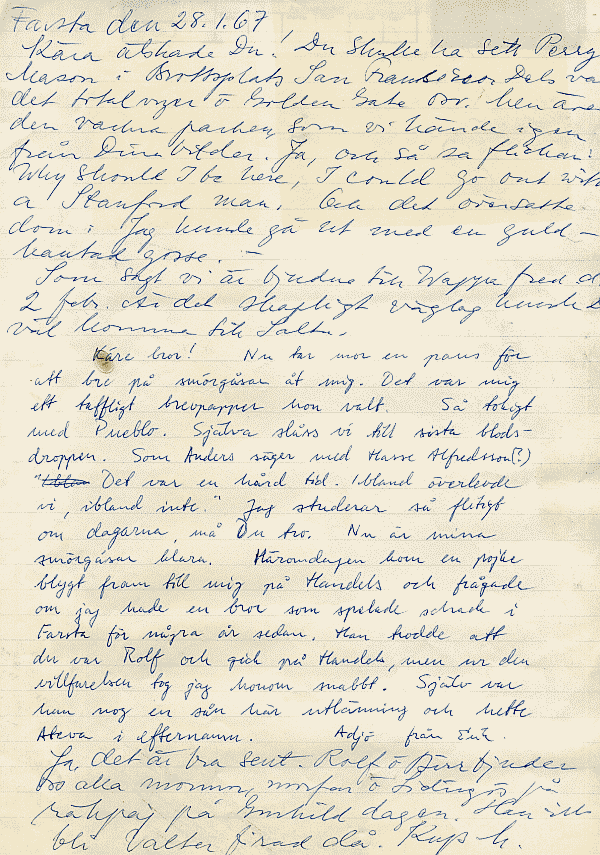 Farsta den 28.1.67
Kära älskade Du! Du skulle ha sett Perry
Mason i Brottsplats San Francisco. Dels va
det total vyer ö Golden Gate osv. men även
den vackra parken, som vi kände igen
från Dina bilder. Ja, och så sa flickan:
Why should I be here, I could go out with
a Stanford man. Och det översatte
dom: Jag kunde gå ut med en guld-
kantad gosse. —
Som sagt vi är bjudna till Wappa fred d
2 febr. Är det skapligt väglag kanske
väl komma till Saltsj.
Käre bror! Nu tar mor en paus för
att bre på smörgåsar åt mig. Det var mig
ett taffligt brevpapper hon valt. Så tokigt
med Pueblo. Själva slåss vi till sista blods-
droppen. Som Anders säger med Hasse Alfredsson(?)
"Ibland Det var en hård tid. Ibland överlevde
vi, ibland inte." Jag studerar så flitigt
om dagarna, må Du tro. Nu är mina
smörgåsar klara. Häromdagen kom en pojke
blygt fram till mig på Handels och frågade
om jag hade en bror som spelade schack i
Farsta för några år sedan. Han trodde att
du var Rolf och gick på Handels, men ur den
villfarelsen tog jag honom snabbt. Själv var
han nog en sån här utlänning och hette
Ateva i efternamn. Adjö från Erik.
Ja, det är bra sent. Rolf ö bjuder
oss alla mormor, morfar ö Lidingö på
räkpaj på Gunhild dagen. Han ska
bli Valter firad då. Kyss M.